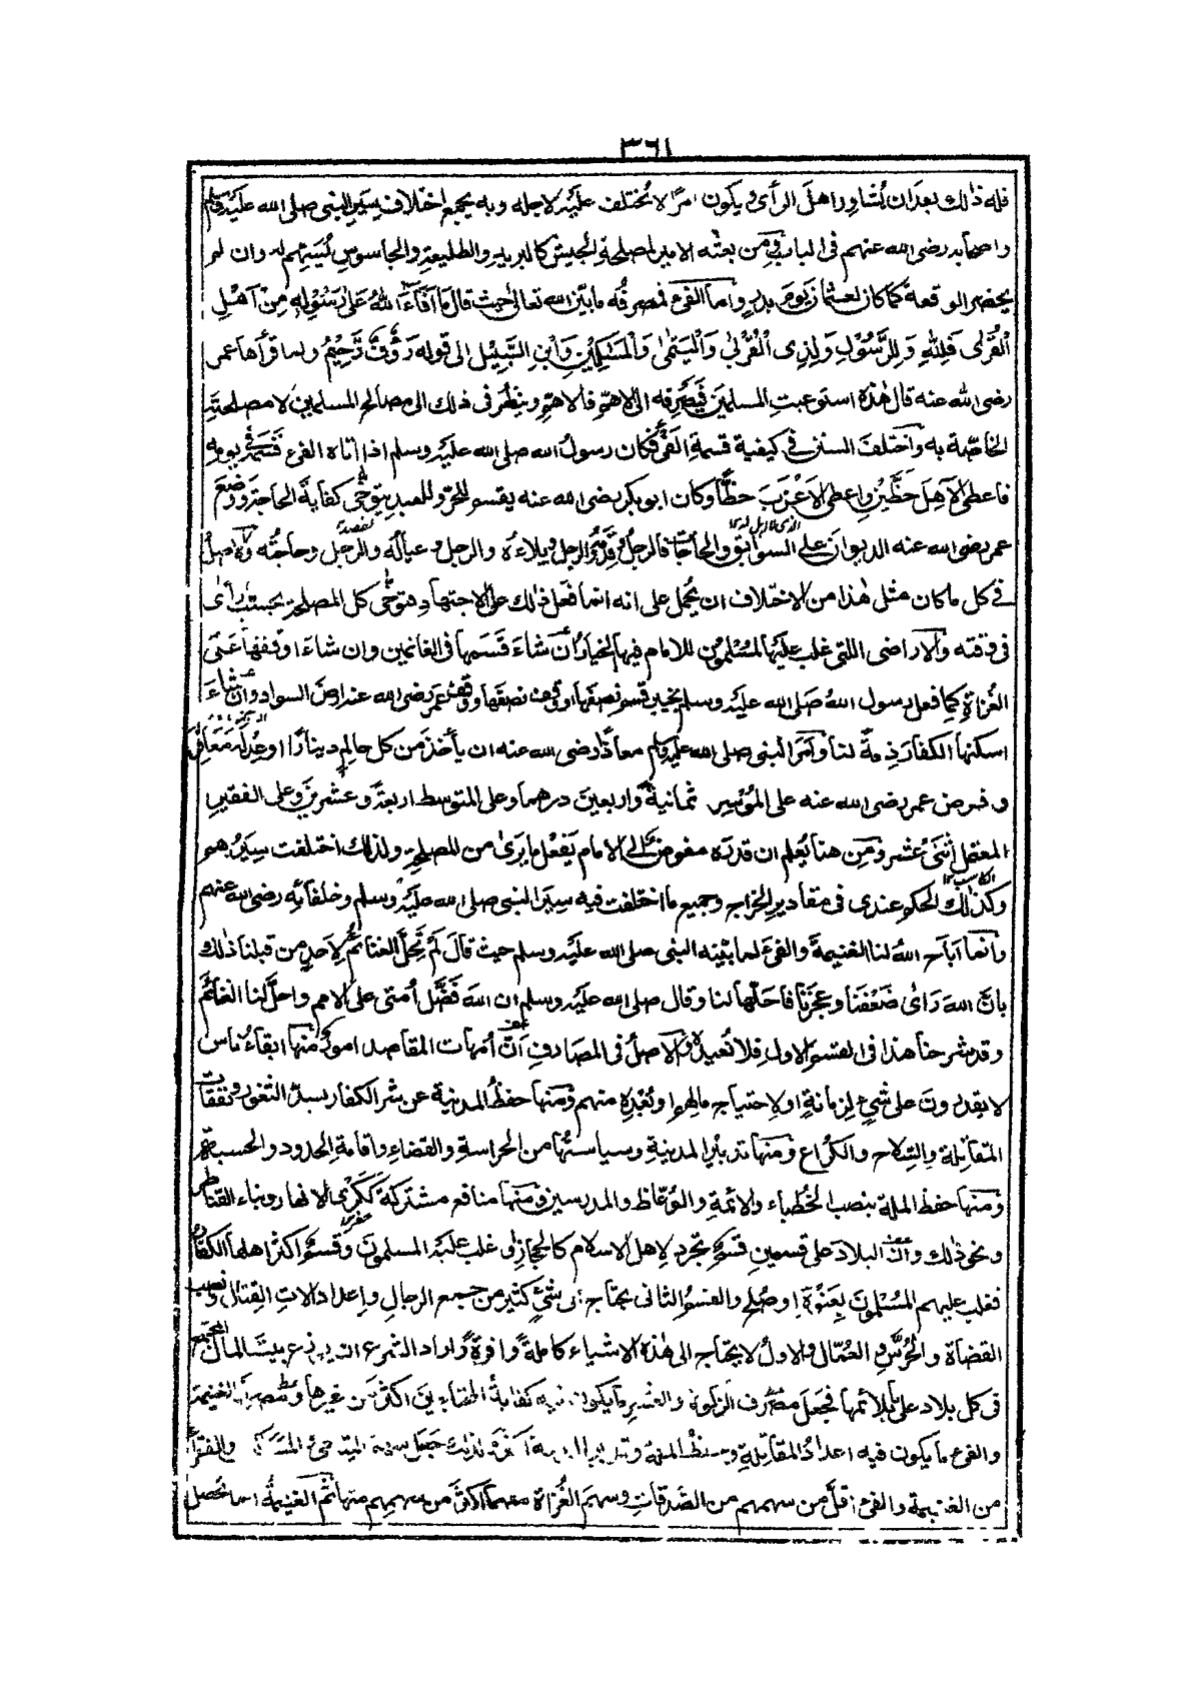 ٣٦١
فله ذلك بعد ان يُشاور اهلَ الرأى ويكون امرًا لا يُختلف عليه لاجله وبه يجمع اختلاف سِيَرِ النبى صلى الله عليه وسلم
واصحابه رضى الله عنهم فى الباب ومن بعثه الامير لمصلحة الجيش كالبريد والطليعة والجاسوس يُسهم له وان لم
يحضر الوقعة كما كان لعثمان يومَ بدرٍ واما الفىء فمصرفُه ما بيّن الله تعالى حيث قال مَا أَفَاءَ اللهُ عَلَى رَسُوْلِهِ مِنْ أَهْلِ
الْقُرٰى فَلِلّٰهِ وَلِلرَّسُوْلِ وَلِذِى الْقُرْبٰى وَالْيَتٰمٰى وَالْمَسٰكِيْنِ وَابْنِ السَّبِيْلِ الى قوله رَؤُفٌ رَّحِيْمٌ ولما قرأها عمر
رضى الله عنه قال هٰذه استوعبتِ المسلمين فيَصرِفه الى الاهمّ فالاهمّ وينظُر فى ذلك الى مصالح المسلمين لا مصلحتهِ
الخاصّة به واختلفَ السنن فى كيفية قسمة الفىء فكان رسولُ الله صلى الله عليه وسلم اذا اتاه الفىء قسَمه فى يومه
فاعطى الآهِلَ حَظَّيْنِ واعطى الاَعْزَبَ حظًّا وكان ابوبكر رضى الله عنه يقسم للحُرّ وللعبد يتوخّى كفايةَ الحاجة ووضَعَ
عمر رضى الله عنه الديوانَ على السوابق والحاجات فالرجلُ وقِدَمُه والرجل وبلاءُه والرجل وعيالُه والرجل وحاجتُه والاصلُ
فى كل ما كان مثل هٰذا من الاختلاف ان يُحمل على انه انما فعل ذلك على الاجتهاد فتوخّى كل المصلحة بحسب ما رأى
فى وقته والاراضى اللتى غلب عليها المُسْلِمُوْن للامام فيها الخيارُ ان شاءَ قَسَمها فى الغانمين وان شاءَ اوقفها على
الغُزاةِ كما فعل رسول اللهُ صَلى الله عليه وسلم بخيبر قسم نصفَها ووقف نصفَها ووقف عمَر رضى الله عنه ارضَ السواد وان شاءَ
اسكنها الكفارَ ذِمةً لنا وأمر النبى صلى الله عليه وسلم معاذًا رضى الله عنه ان يأخذ من كل حالمٍ دينارًا او عِدلَه مَعَافِرَ
وفرض عمر رضى الله عنه على المُوسِر ثمانيةً واربعينَ درهما وعلى المتوسط اربعةً وعشرين وعلى الفقيرِ
المعتمِل اثنىْ عشر ومن هنا يُعلم ان قدرَه مفوض الى الامام يَفْعَل ما يَرىٰ من المصلحةِ ولذلك اختلفت سِيَرُهم
وكذلك الحكم عندى فى مقادير الخراج وجميعِ ما اختلفت فيه سِيَر النبى صلى الله عليه وسلم وخلفائِه رضى الله عنهم
وانما اَبَاح اللهُ لنا الغنيمةَ والفىءَ لما بيّنه النبى صلى الله عليه وسلم حيث قال لَمْ تَحِلَّ الغنائمُ لِاَحدٍ من قبلنا ذلك
بانَّ اللهَ رَأىٰ ضَعْفَنا وعجزَنا فاَحَلّها لنا وقال صلى الله عليه وسلم ان اللهَ فَضَّل اُمتى على الامم واحلّ لنا الغنائمَ
وقد شرحنا هذا فى القسم الاول فلا نُعيده والاصلُ فى المصارفِ انّ اُمهات المقاصد امورٌ منها ابقاءُ ناس
لا يقدرونَ على شىءٍ لزمانةٍ او لاحتياج مالهم او بُعْدِه منهم ومنها حفظُ المدينةِ عن شر الكفار بسدّ الثغور ونفقاتِ
المقاتِلة والسِّلاح والكُراع ومنها تدبيرُ المدينةِ وسياستُها من الحراسةِ والقضاءِ واقامةِ الحدود والحسبةِ
ومنها حفظُ الملة بنصب الخُطباء والائمةِ والوُعّاظ والمدرسين ومنها منافعُ مشتركةٌ ككَرْىِ الانهار وبناء القناطر
ونحو ذلك وانّ البلادَ على قسمين قسمٌ تجرد لاهل الاسلام كالحجاز او غلب عليه المسلمونَ وقسمٌ اكثر اهلها الكفار
فغلب عليهم المُسْلمونَ بِعَنْوةٍ او صُلحٍ والقسمُ الثانى يحتاج الى شىءٍ كثير من جمع الرجالِ وإعداد آلاتِ القِتال ونصب
القضاة والحَرَسِ والعُمّال والاولُ لا يحتاج الى هٰذه الاشياء كاملةً وافرةً واراد الشرع ان يوزع بيتَ المال المجتمع
فى كل بلاد على ما يلائمها فجعَلَ مَصْرِف الزكوة والعشر ما يكون فيه كفايةُ المحتاجين اكثرَ من غيرها ومصرِفَ الغنيمة
والفىء ما يكون فيه اعدادُ المقاتِلةِ وحفظُ الملة وتدبيرُ المدينة اكثرَ ولذلك جعَل سهمَ اليتامىٰ والمساكين والفقراء
من الغنيمةِ والفىء اقلَّ من سهمهم من الصَّدقاتِ وسهمَ الغُزاة منهما اكثرَ من سهمِهم منها ثم الغنيمةُ انما تحصل